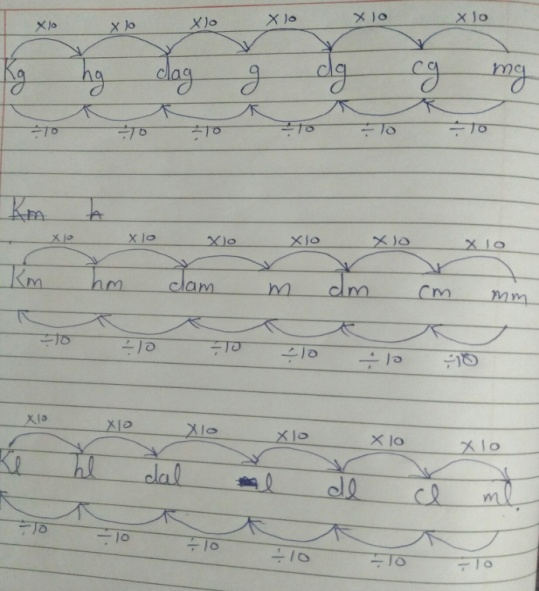 ×10 ×10 ×10 ×10 ×10 ×10
Kg hg dag g dg cg mg
÷10 ÷10 ÷10 ÷10 ÷10 ÷10
Km h
×10 ×10 ×10 ×10 ×10 ×10
Km hm dam m dm cm mm
÷10 ÷10 ÷10 ÷10 ÷10 ÷10
×10 ×10 ×10 ×10 ×10 ×10
Kl hl dal l dl cl ml
÷10 ÷10 ÷10 ÷10 ÷10 ÷10